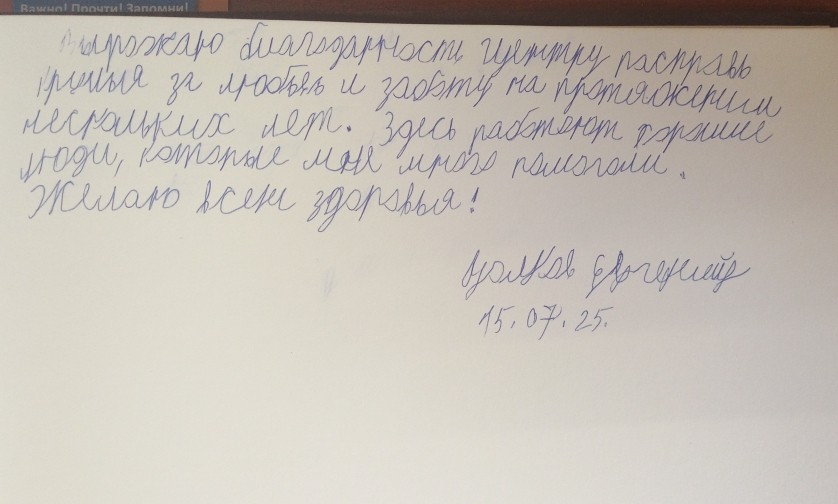 Важно! Прочти! Запомни!
Выражаю благодарность центру расправь
крылья за любовь и заботу на протяжении
нескольких лет. Здесь работают хорошие
люди, которые мне много помогали.
Желаю всем здоровья!
Волков Евгений
15.07.25.